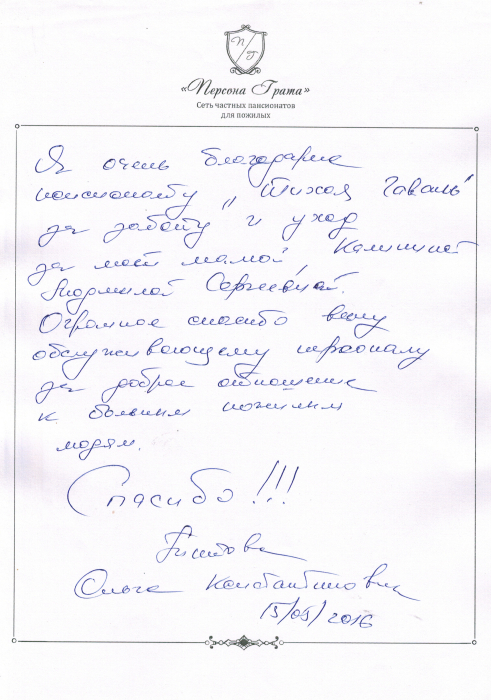 П/Г
«Персона Грата»
Сеть частных пансионатов
для пожилых
Я очень благодарна
пансионату „Тихая Гавань"
за заботу и уход
за моей мамой, Калининой
Людмилой Сергеевной.
Огромное спасибо всему
обслуживающему персоналу
за доброе отношение
к больным пожилым
людям.
Спасибо!!!
Ольга Константиновна
15/05/2016